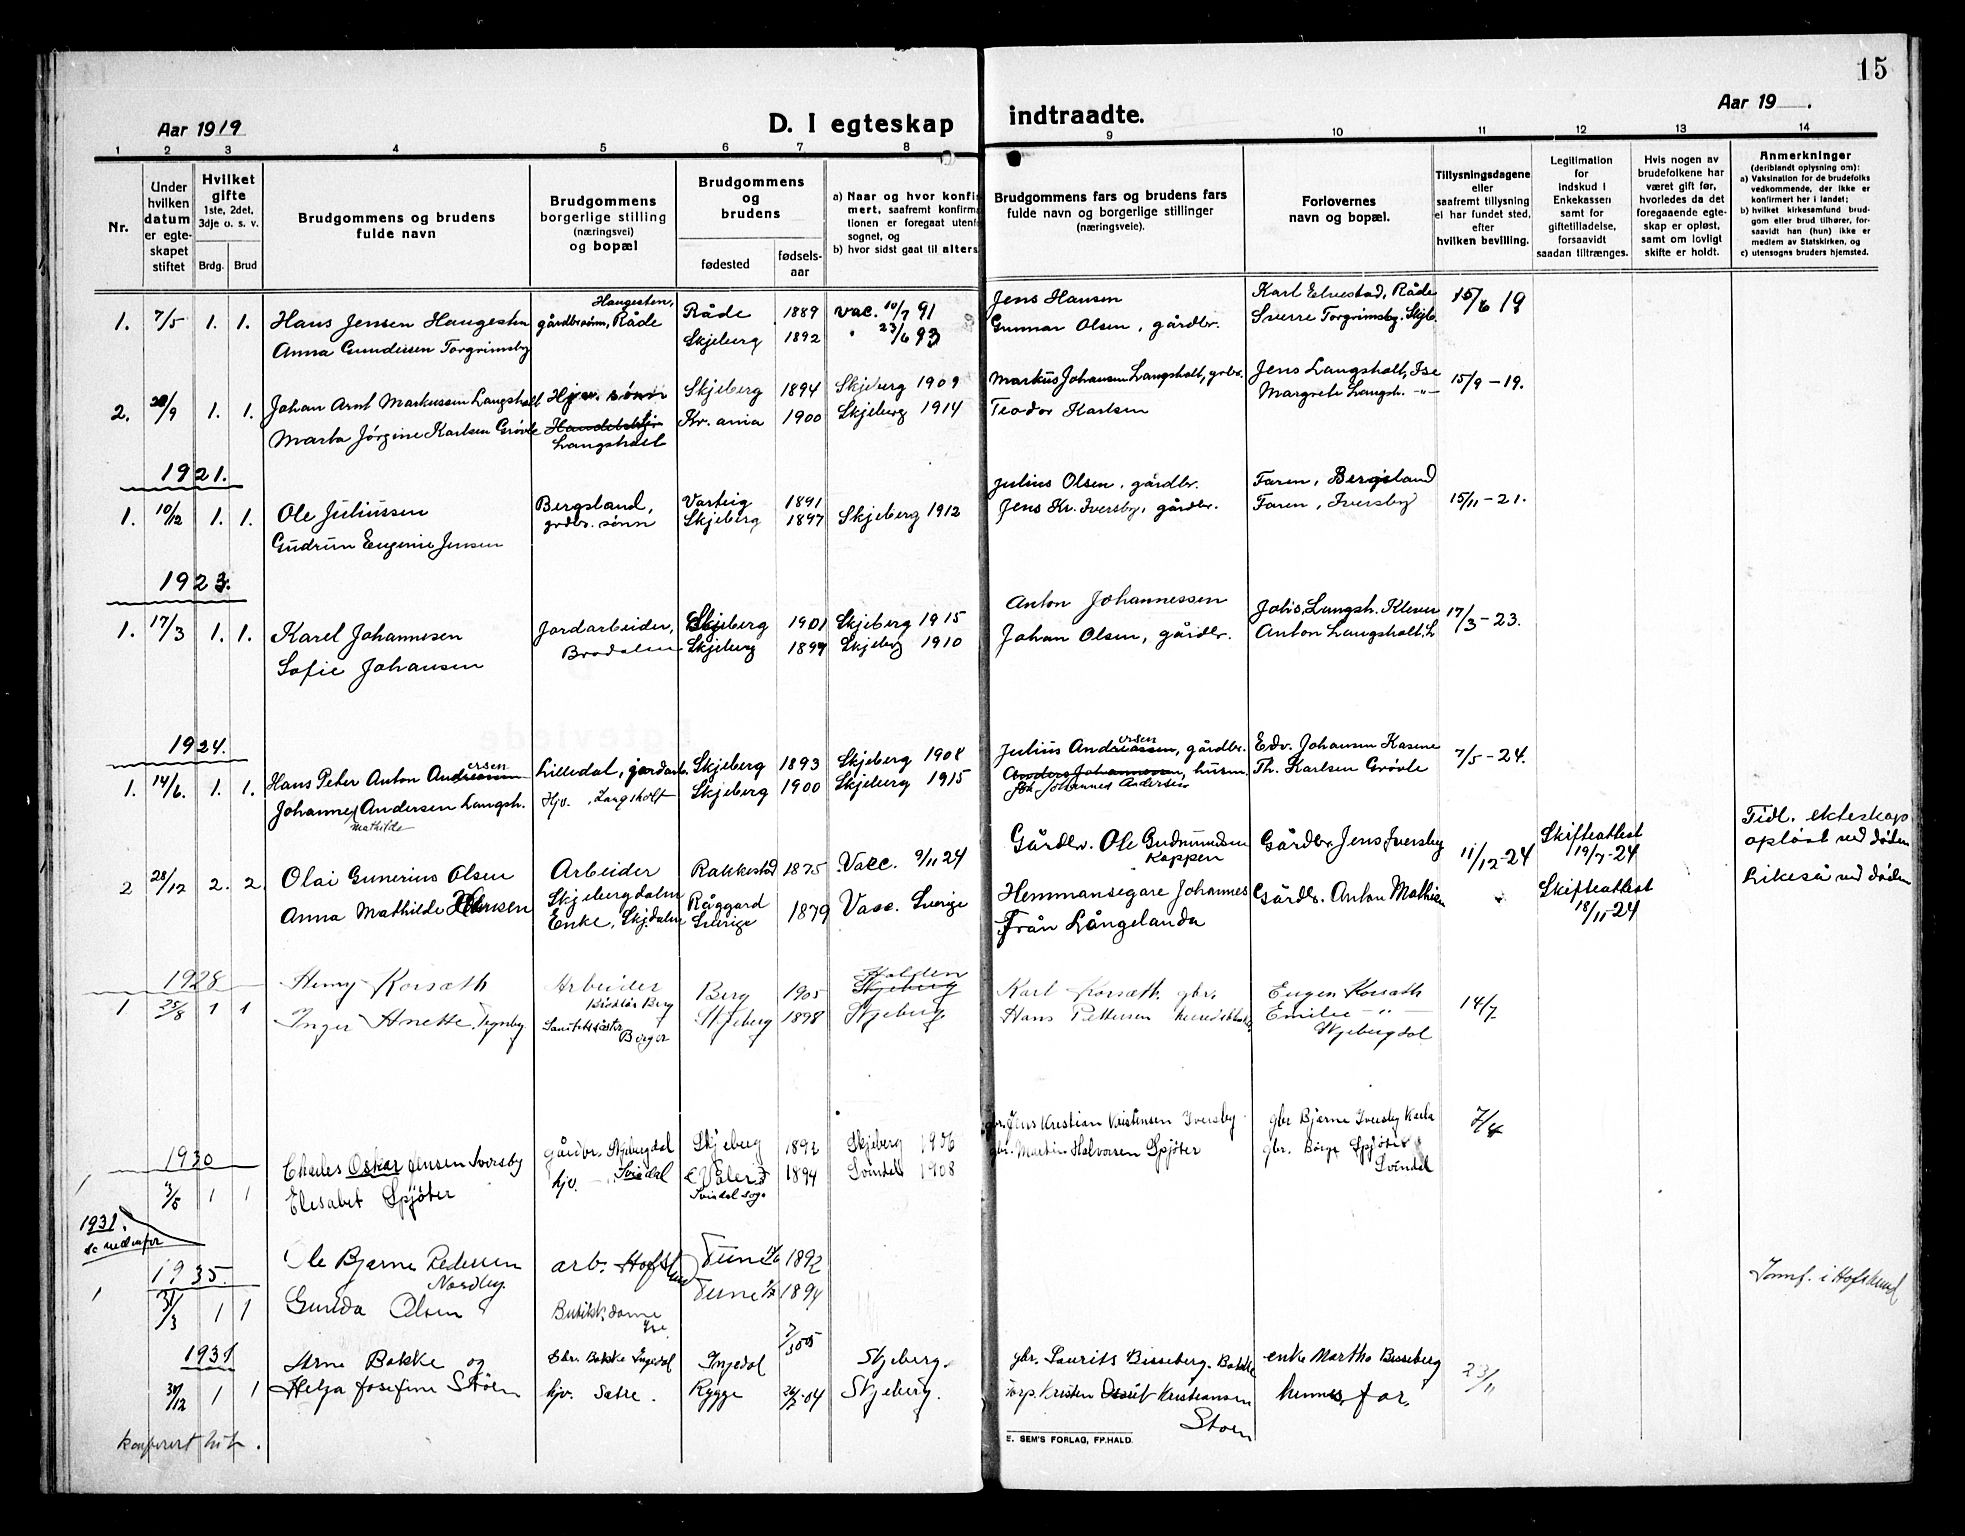 15
Aar 1919
D. I egteskap indtraadte.
Aar 19 .
1 2 3 4 5 6 7 8 9 10 11 12 13 14
Nr.
Under hvilken datum er egteskapet stiftet
Hvilket gifte 1ste, 2det, 3dje o. s. v.
Brdg. Brud
Brudgommens og brudens fulde navn
Brudgommens borgerlige stilling (næringsvei) og bopæl
Brudgommens og brudens
fødested
fødsels-aar
a) Naar og hvor konfir
mert, saafremt konfirma
tionen er foregaat utenfo
sognet, og
b) hvor sidst gaat til alters
Brudgommens fars og brudens fars
fulde navn og borgerlige stillinger
(næringsveie).
Forlovernes
navn og bopæl.
Tillysningsdagene
eller
saafremt tillysning
ei har fundet sted,
efter
hvilken bevilling.
Legitimation
for
indskud i
Enkekassen
samt for
giftetilladelse,
forsaavidt
saadan tiltrænges.
Hvis nogen av
brudefolkene har
været gift før,
hvorledes da det
foregaaende egte-
skap er opløst,
samt om lovligt
skifte er holdt.
Anmerkninger
(deriblandt oplysning om):
a) Vaksination for de brudefolks
vedkommende, der ikke er
konfirmert her i landet;
b) hvilket kirkesamfund brud-
gom eller brud tilhører, for-
saavidt han (hun) ikke er
medlem av Statskirken, og
c) utensogns bruders hjemsted.
1. 7/5 1. 1. Hans Jensen Haugesten Haugesten, gårdbr.sønn, Råde Råde 1889 vac. 10/7 91 Jens Hansen Karl Elvestad, Råde 15/6 19
Anna Gundersen Torgrimsby Skjeberg 1892 " 23/6 93 Gunnar Olsen, gårdbr. Sverre Torgrimsby, Skjb.
2. 28/9 1. 1. Johan Arnt Markussen Langsholt Skjeberg 1894 Skjeberg 1909 Markus Johansen Langsholt, grbr. Jens Langsholt, Ise 15/9 - 19.
Marta Jörgine Karlsen Grövle Langsholt Kr.ania 1900 Skjeberg 1914 Teodor Karlsen Margrete Langsh. -"-
1921.
1. 10/12 1. 1. Ole Juliussen Bergsland, grdbr. sønn Varteig 1891 Julius Olsen, gårdbr. Faren, Bergsland 15/11 - 21.
Gudrun Eugenie Jensen Skjeberg 1897 Skjeberg 1912 Jens Kr. Iversby, gårdbr. Faren, Iversby
1923.
1. 17/3 1. 1. Karel Johannesen Jordarbeider, Brodalen Skjeberg 1901 Skjeberg 1915 Anton Johannessen 17/3 - 23.
Sofie Johansen Skjeberg 1899 Skjeberg 1910 Johan Olsen, gårdbr. Anton Langsholt, L
1924.
1. 14/6. 1. 1. Hans Peter Anton Andreassen ersen Lilledal, jordarb. Skjeberg 1893 Skjeberg 1908 Julius Andreassen ersen, gårdbr. Edv. Johansen Kasene 7/5 - 24.
Johanne Andersen Langsh. Mathilde Hjv. Langsholt Skjeberg 1900 Skjeberg 1915 Anders Johannessen, husm. Th. Karlsen Grövle
Johannes Andersen
2 28/12 2. 2. Olai Gunerius Olsen Arbeider Skjebergdalen Rakkestad 1875 Vacc. 9/11 24 Gårdbr. Ole Gudmundsen Koppen Gårdbr. Jens Iversby 11/12-24 Skifteattest 19/7-24 Tidl. ekteskap opløst ved døden
Anna Mathilde Hansen Enke, Skjdalen Råggard Sverige 1879 Vacc. Sverige Hemmansegare Johannes Från Långelanda Gårdb. Anton Mathisen " Skifteattest 18/11-24 Likeså ved døden
1928
1 25/8 1 1 Henry Korsæth Arbeider Berg Berg 1905 Halden Skjeberg Karl Korsæth gbr. Eugen Korsæth 14/7
Inger Anette Skjeberg 1898 Skjeberg. Hans Pettersen Emilie -"- Skjebergdal
1930
1 3/5 1 1 Charles Oskar Jensen Iversby gårdbr. Skjebergdal Skjeberg 1892 Skjeberg 1906 Jens Kristian Kristensen Iversby gbr Bjarne Iversby 7/4
Elisabet Spjøter hjv. Svindal Våler Svindal sogn 1894 Svindal 1908 gbr. Martin Halvorsen Spjøter gbr. Børge Spjøter Svindal
1931. se nedenfor
1935.
1 31/3 1 1 Ole Bjarne Pedersen Nordby. arb. Hofslund Tune 1892 Innf. i Hofslund
Gunda Olsen Butikkdame Ise Tune 1894
1931
30/12 1 1 Arne Bakke og Gbr. Bakke Ingedal Ingedal 7/3 05 Skjeberg. gbr. Laurits Bisseberg. Bakke enke Martha Bisseberg 23/11
Helga Josefine Støen hjv. Sætre. Rygge 04 Skjeberg. Kristen Kristiansen Støen hennes far.
konferert hit.
E. SEM'S FORLAG, FP.HALD.